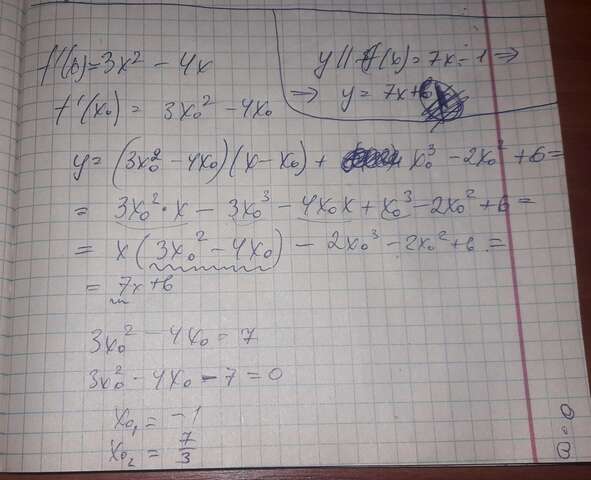 f'(x)=3x² - 4x
y || f(x) = 7x - 1 ⇒
⇒ y = 7x+b
f'(x₀) = 3x₀² - 4x₀
y = (3x₀² - 4x₀)(x - x₀) + x₀³ - 2x₀² + 6 =
= 3x₀²·x - 3x₀³ - 4x₀x + x₀³ - 2x₀² + 6 =
= x(3x₀² - 4x₀) - 2x₀³ - 2x₀² + 6 =
= 7x + b
3x₀² - 4x₀ = 7
3x₀² - 4x₀ - 7 = 0
x₀₁ = -1
x₀₂ = 7/3